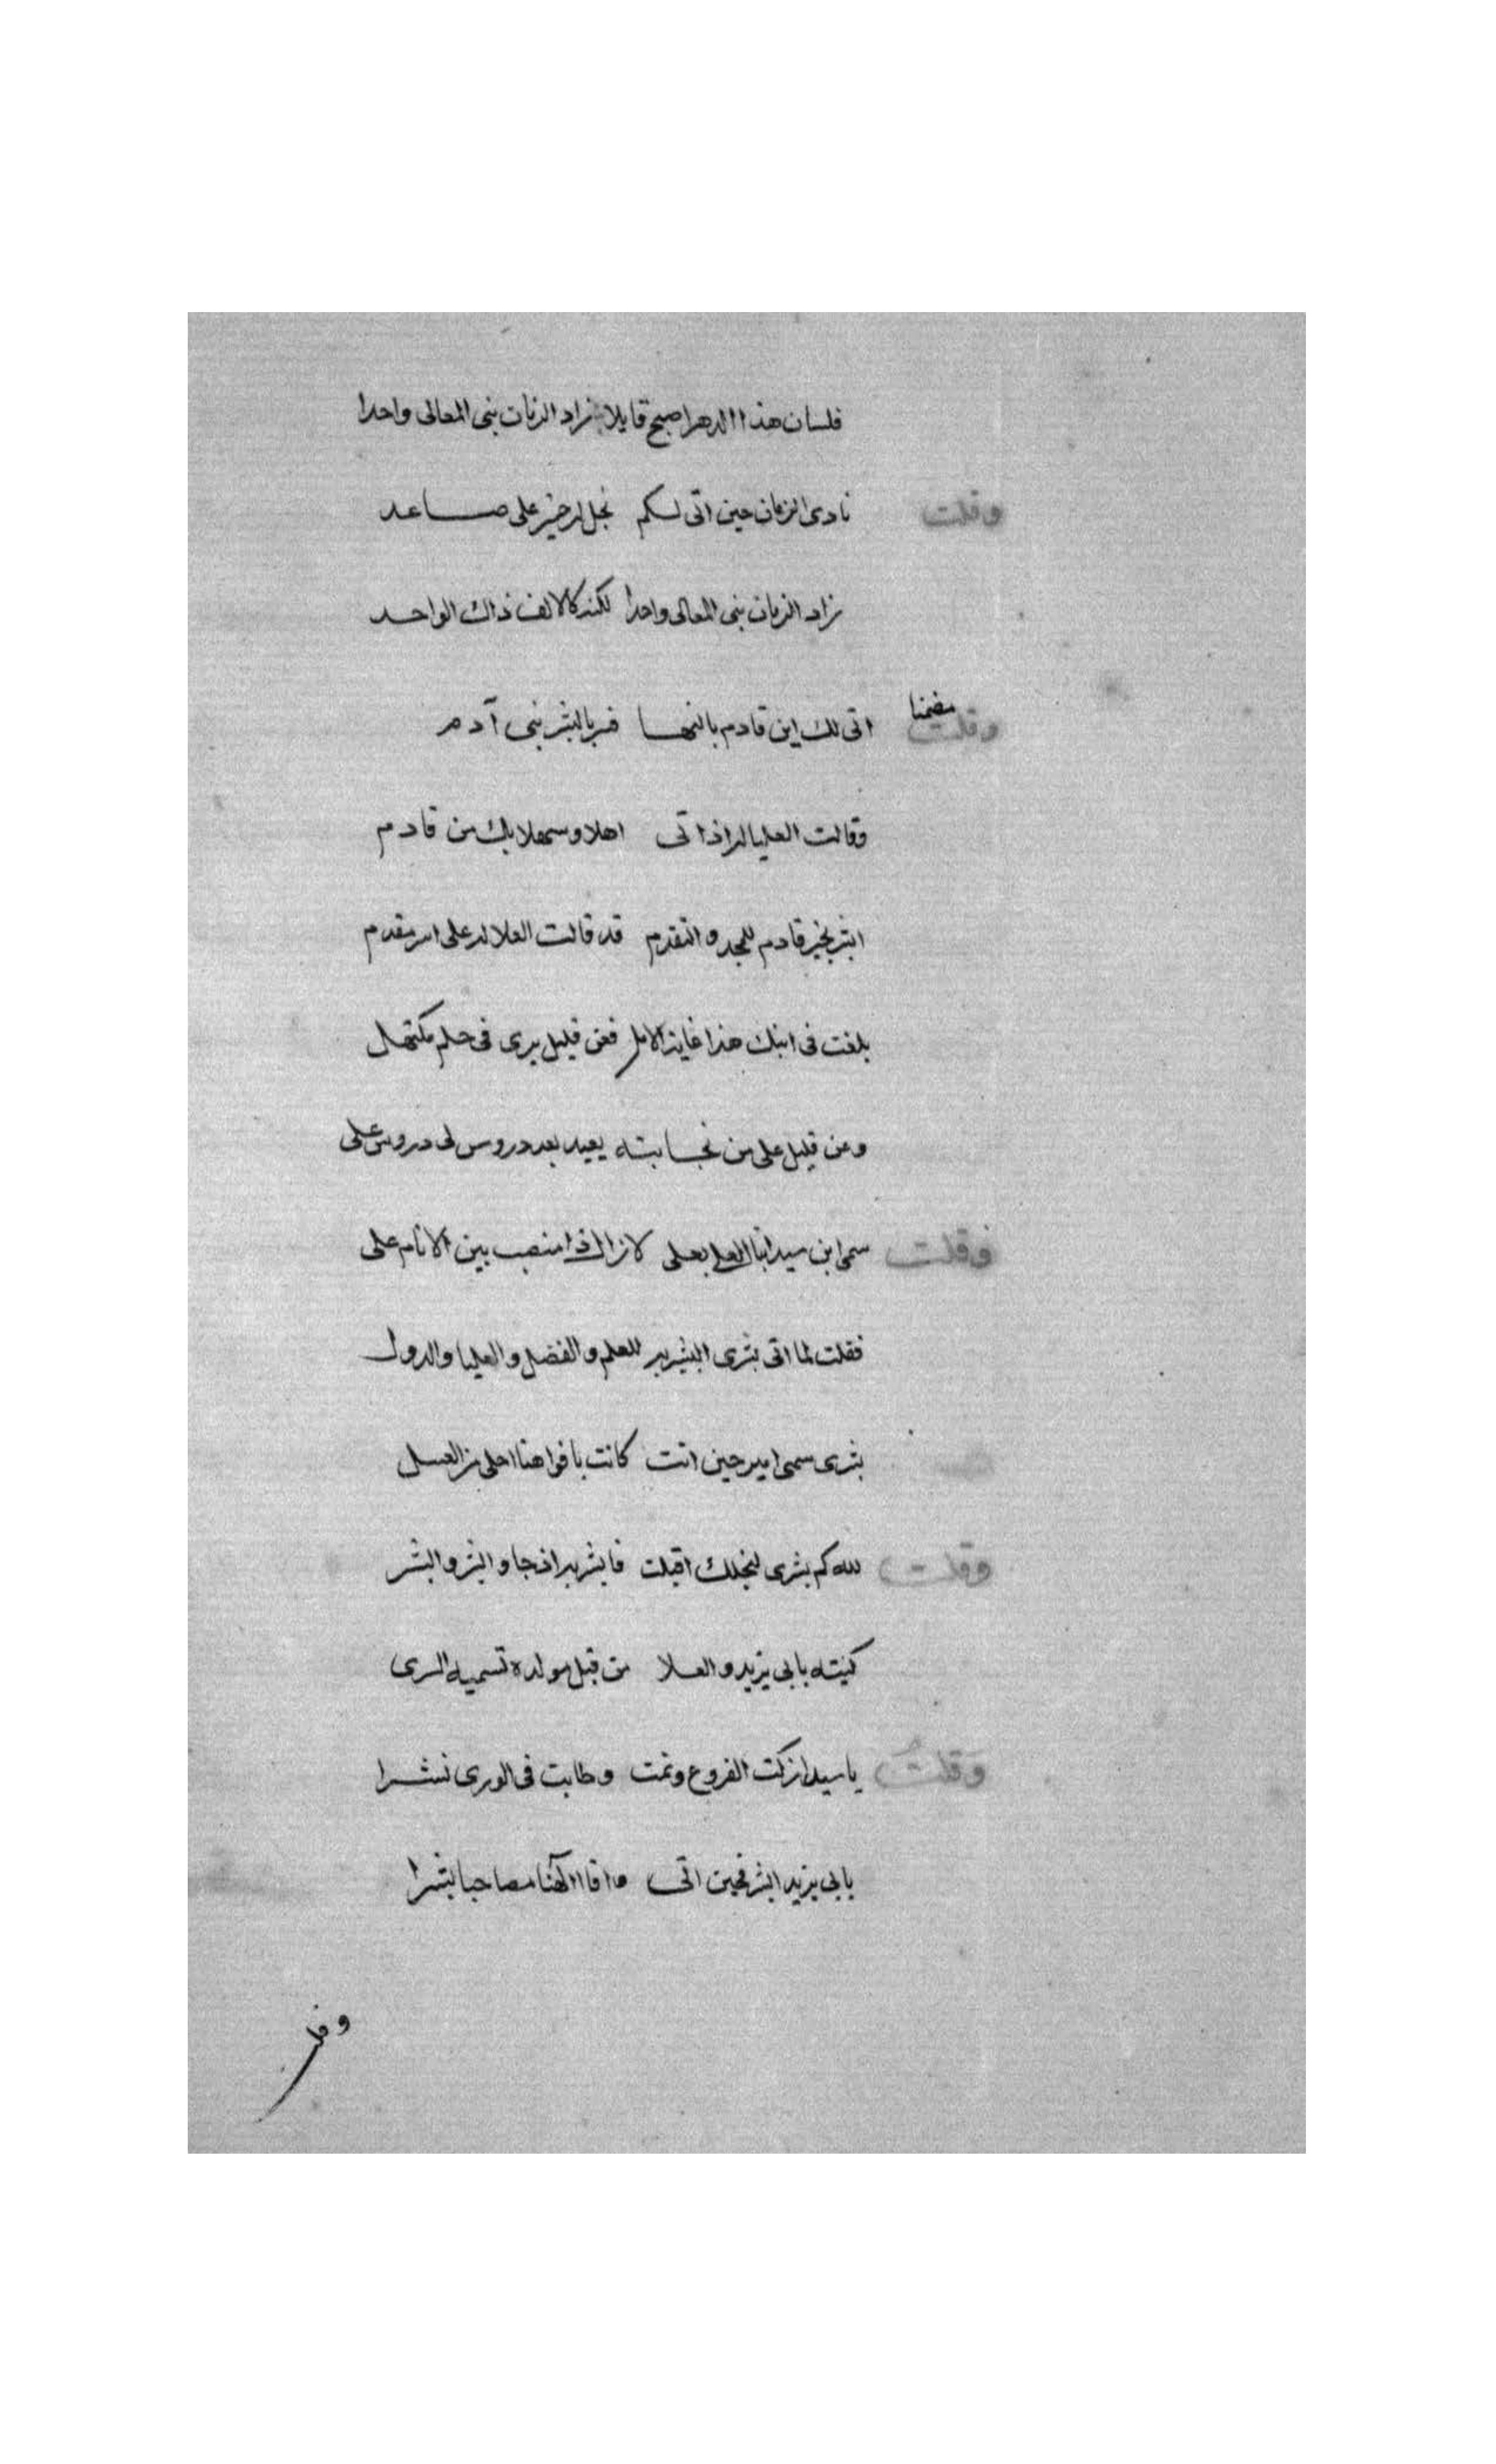 فلسان هذا الدهر اصبح قايلا زاد الزمان بنى المعالى واحدا
وقلت نادى الزمان حين اتى لكم نجل له خير على صاعد
زاد الزمان بنى المعالى واحدا لكنه كالالف ذاك الواحد
وقلت مضمنا اتى لك ابن قادم بالنها فسر بالبشر بنى آدم
وقالت العليا له اذ اتى اهلا وسهلا بك من قادم
ابشر بخير قادم للمجد والتقدم قد قالت العلا له على اسر مقدم
بلغت فى ابنك هذا غاية الامل فعن قليل يرى فى حلم مكتهل
وعن قليل على من نجابته يعيد بعد دروس لى دروس على
وقلت سمى ابن سيدنا العلى بعلى لا زال ذا منصب بين الانام على
فقلت لما اتى بشرى البشير به للعلم والفضل والعليا والدول
بشرى سمى امير حين اتت كانت بافواهنا احلى من العسل
وقلت لله كم بشرى لنجلك اقبلت فابشر به اذ جا والبشر والبشر
كنيته بابى يزيد والعلا من قبل مولده تسميه السرى
وقلت يا سيدا زكت الفروع ونمت وطابت فى الورى نشرا
بابى يزيد ابشر فحين اتى وافا الهنا مصاحبا بشرا
وقلت